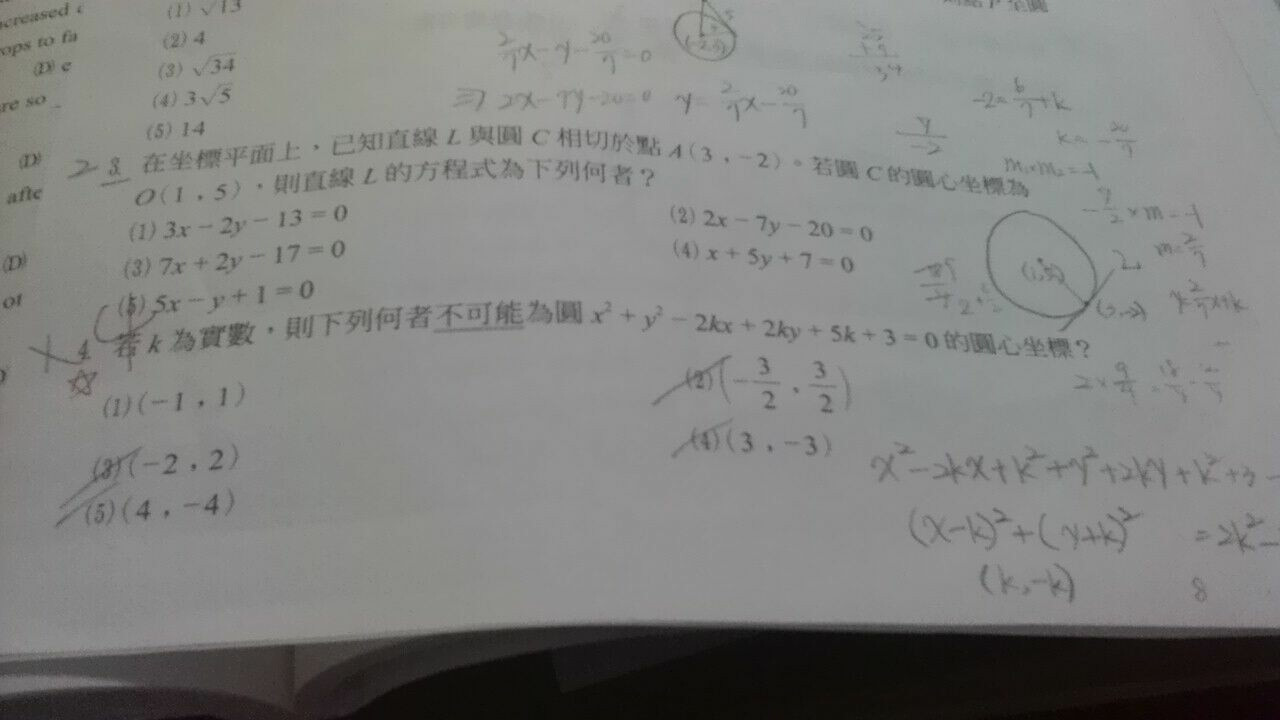 ncreased
ops to fa
(D) e
re so
(D)
afte
(D)
ot
(1) √13
(2) 4
(3) √34
(4) 3√5
(5) 14
2/7x-y-20/7=0
⇒ 2x-7y-20=0 y=2/7x-20/7
-2=6/7+k
k=-20/7
m₁×m₂=-1
2 3 在坐標平面上，已知直線 L 與圓 C 相切於點 A(3，-2)。若圓 C 的圓心坐標為
O(1，5)，則直線 L 的方程式為下列何者？
(1) 3x-2y-13=0
(2) 2x-7y-20=0
(3) 7x+2y-17=0
(4) x+5y+7=0
(5) 5x-y+1=0
-7/2×m=-1
m=2/7
4 若 k 為實數，則下列何者不可能為圓 x²+y²-2kx+2ky+5k+3=0 的圓心坐標？
(1) (-1，1)
(2) (-3/2，3/2)
(3) (-2，2)
(4) (3，-3)
(5) (4，-4)
x²-2kx+k²+y²+2ky+k²+3-
(x-k)²+(y+k)² =2k²-
(k,-k)
8